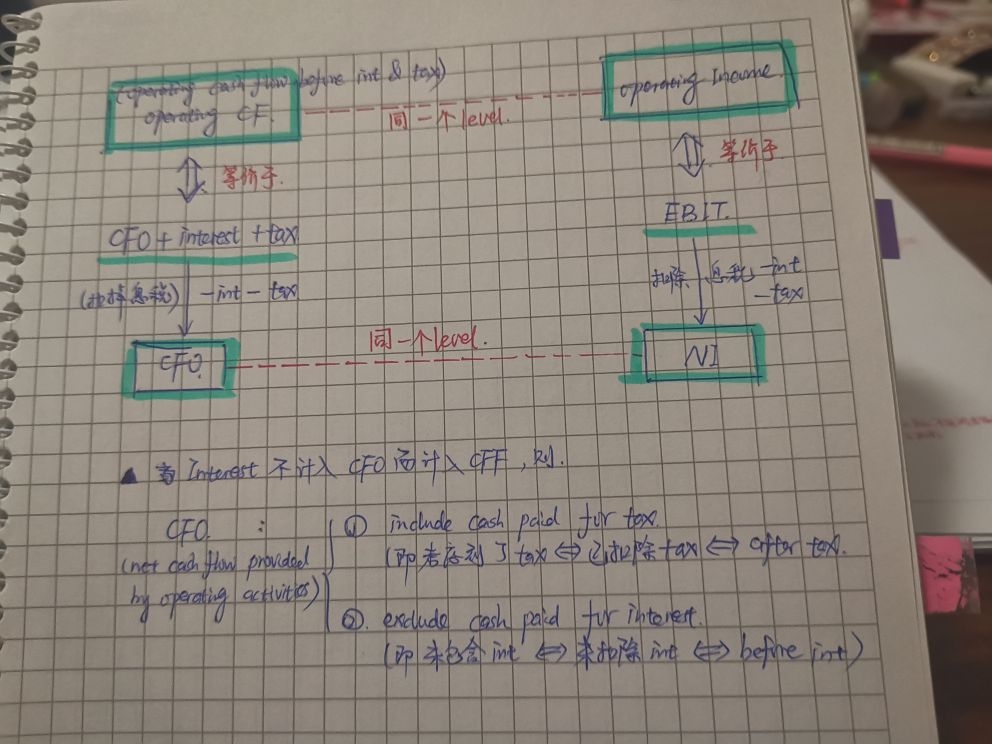 (operating cash flow before int & tax)
operating CF.
同一个level.
operating Income.
等价于.
等价于
CFO + interest + tax
EBIT.
(扣掉息税)
-int - tax
扣除
息税 -int
-tax
同一个level.
CFO.
NI
▲ 当 Interest 不计入 CFO 而计入 CFF, 则.
CFO. :
(net cash flow provided
by operating activities)
① include cash paid for tax.
(即考虑到了 tax ⇔ 已扣除 tax ⇔ after tax.
②. exclude cash paid for interest.
(即 未包含 int ⇔ 未扣除 int ⇔ before int)